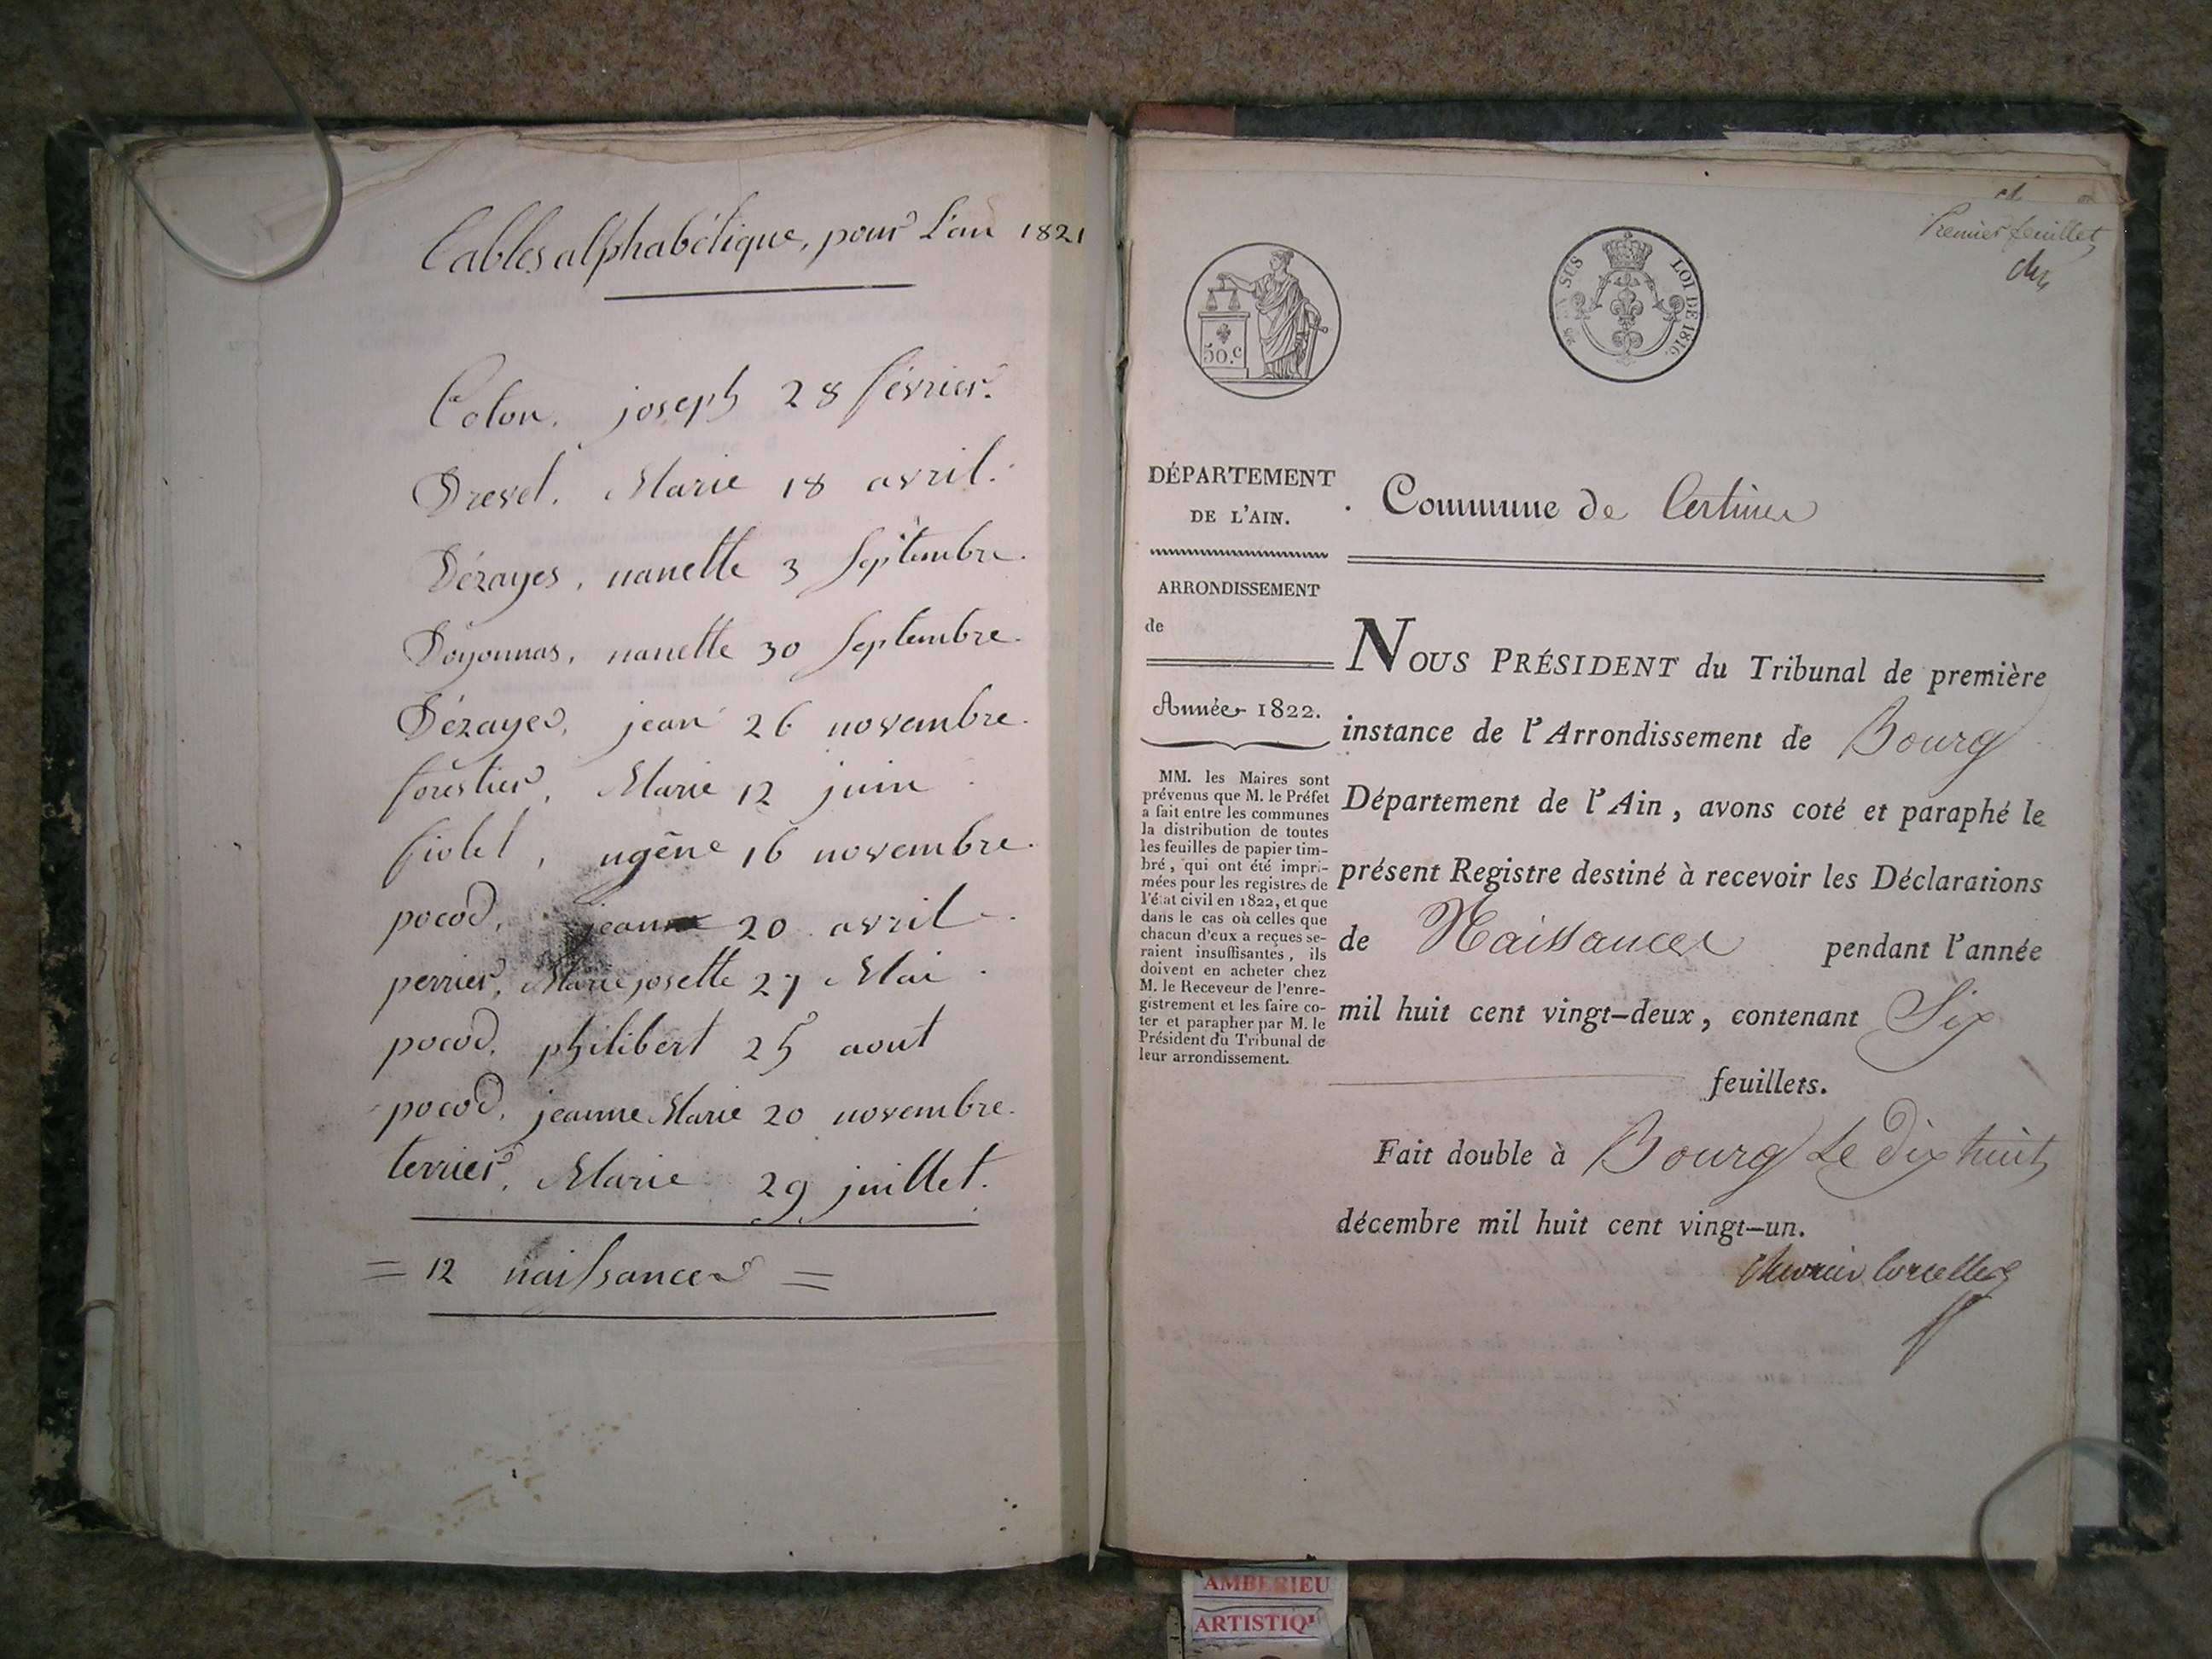 Tables alphabétique, pour L'an 1821
Colon. joseph 28 février.
Drevet. Marie 18 avril.
Dézayes, nanette 3 Septembre.
Doyonnas, nanette 30 Septembre.
Dézayes, jean 26 novembre.
forêstier, Marie 12 juin
fiolet, ugêne 16 novembre.
pocod, jeanne 20 avril
perrier, Marie josette 27 Mai.
pocod, philibert 25 aout
pocod, jeanne Marie 20 novembre.
terrier, Marie 29 juillet.
= 12 naissances =
Premier feuillet
50.c
SUS LOI DE 1816.
DÉPARTEMENT
DE L'AIN.
Commune de Certines
ARRONDISSEMENT
de
Année 1822.
MM. les Maires sont
prévenus que M. le Préfet
a fait entre les communes
la distribution de toutes
les feuilles de papier tim-
bré, qui ont été impri-
mées pour les registres de
l'état civil en 1822, et que
dans le cas où celles que
chacun d'eux a reçues se-
raient insuffisantes, ils
doivent en acheter chez
M. le Receveur de l'enre-
gistrement et les faire co-
ter et parapher par M. le
Président du Tribunal de
leur arrondissement.
NOUS PRÉSIDENT du Tribunal de première
instance de l'Arrondissement de Bourg
Département de l'Ain, avons coté et paraphé le
présent Registre destiné à recevoir les Déclarations
de Naissances pendant l'année
mil huit cent vingt-deux, contenant Six
feuillets.
Fait double à Bourg Le dix huit
décembre mil huit cent vingt-un.
AMBERIEU
ARTISTIQU